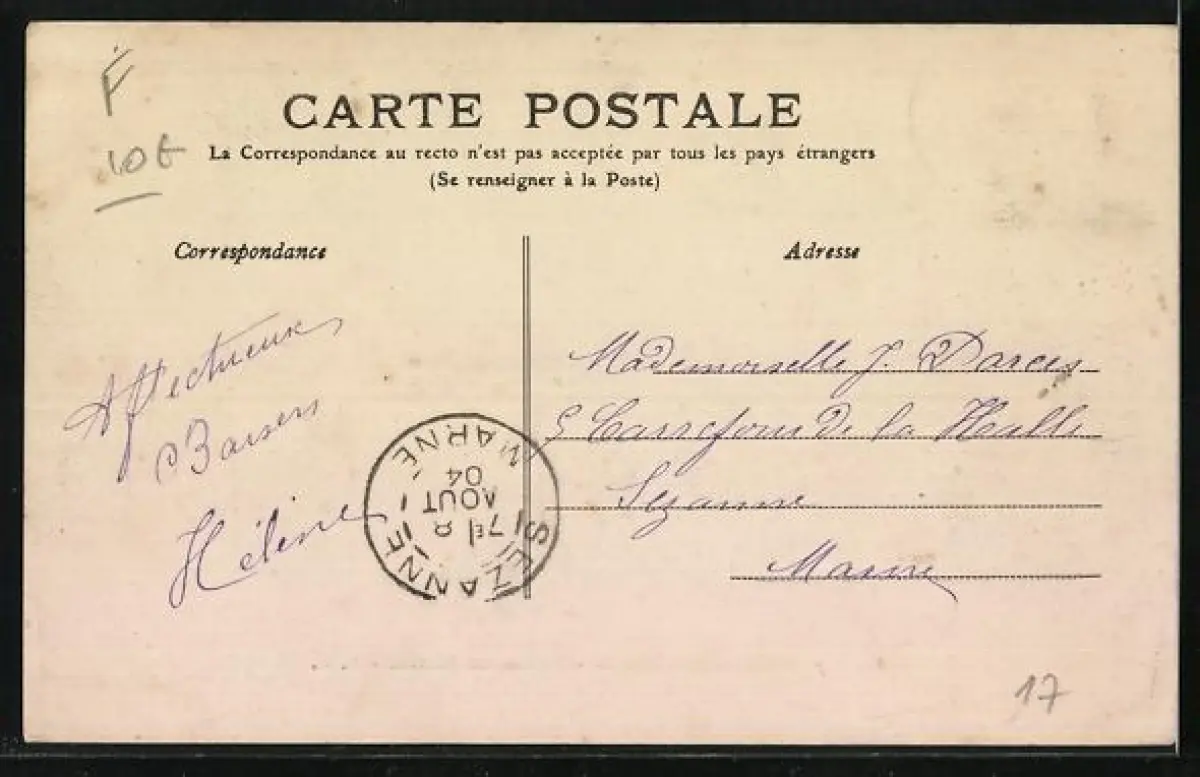 F
10 €
CARTE POSTALE
La Correspondance au recto n'est pas acceptée par tous les pays étrangers
(Se renseigner à la Poste)
Correspondance
Adresse
Affectueux
Baisers
Hélène
Mademoiselle J.
5 Carrefour de la Halle
Sézanne
Marne
SÉZANNE
MARNE
7E 8
AOUT
04
17